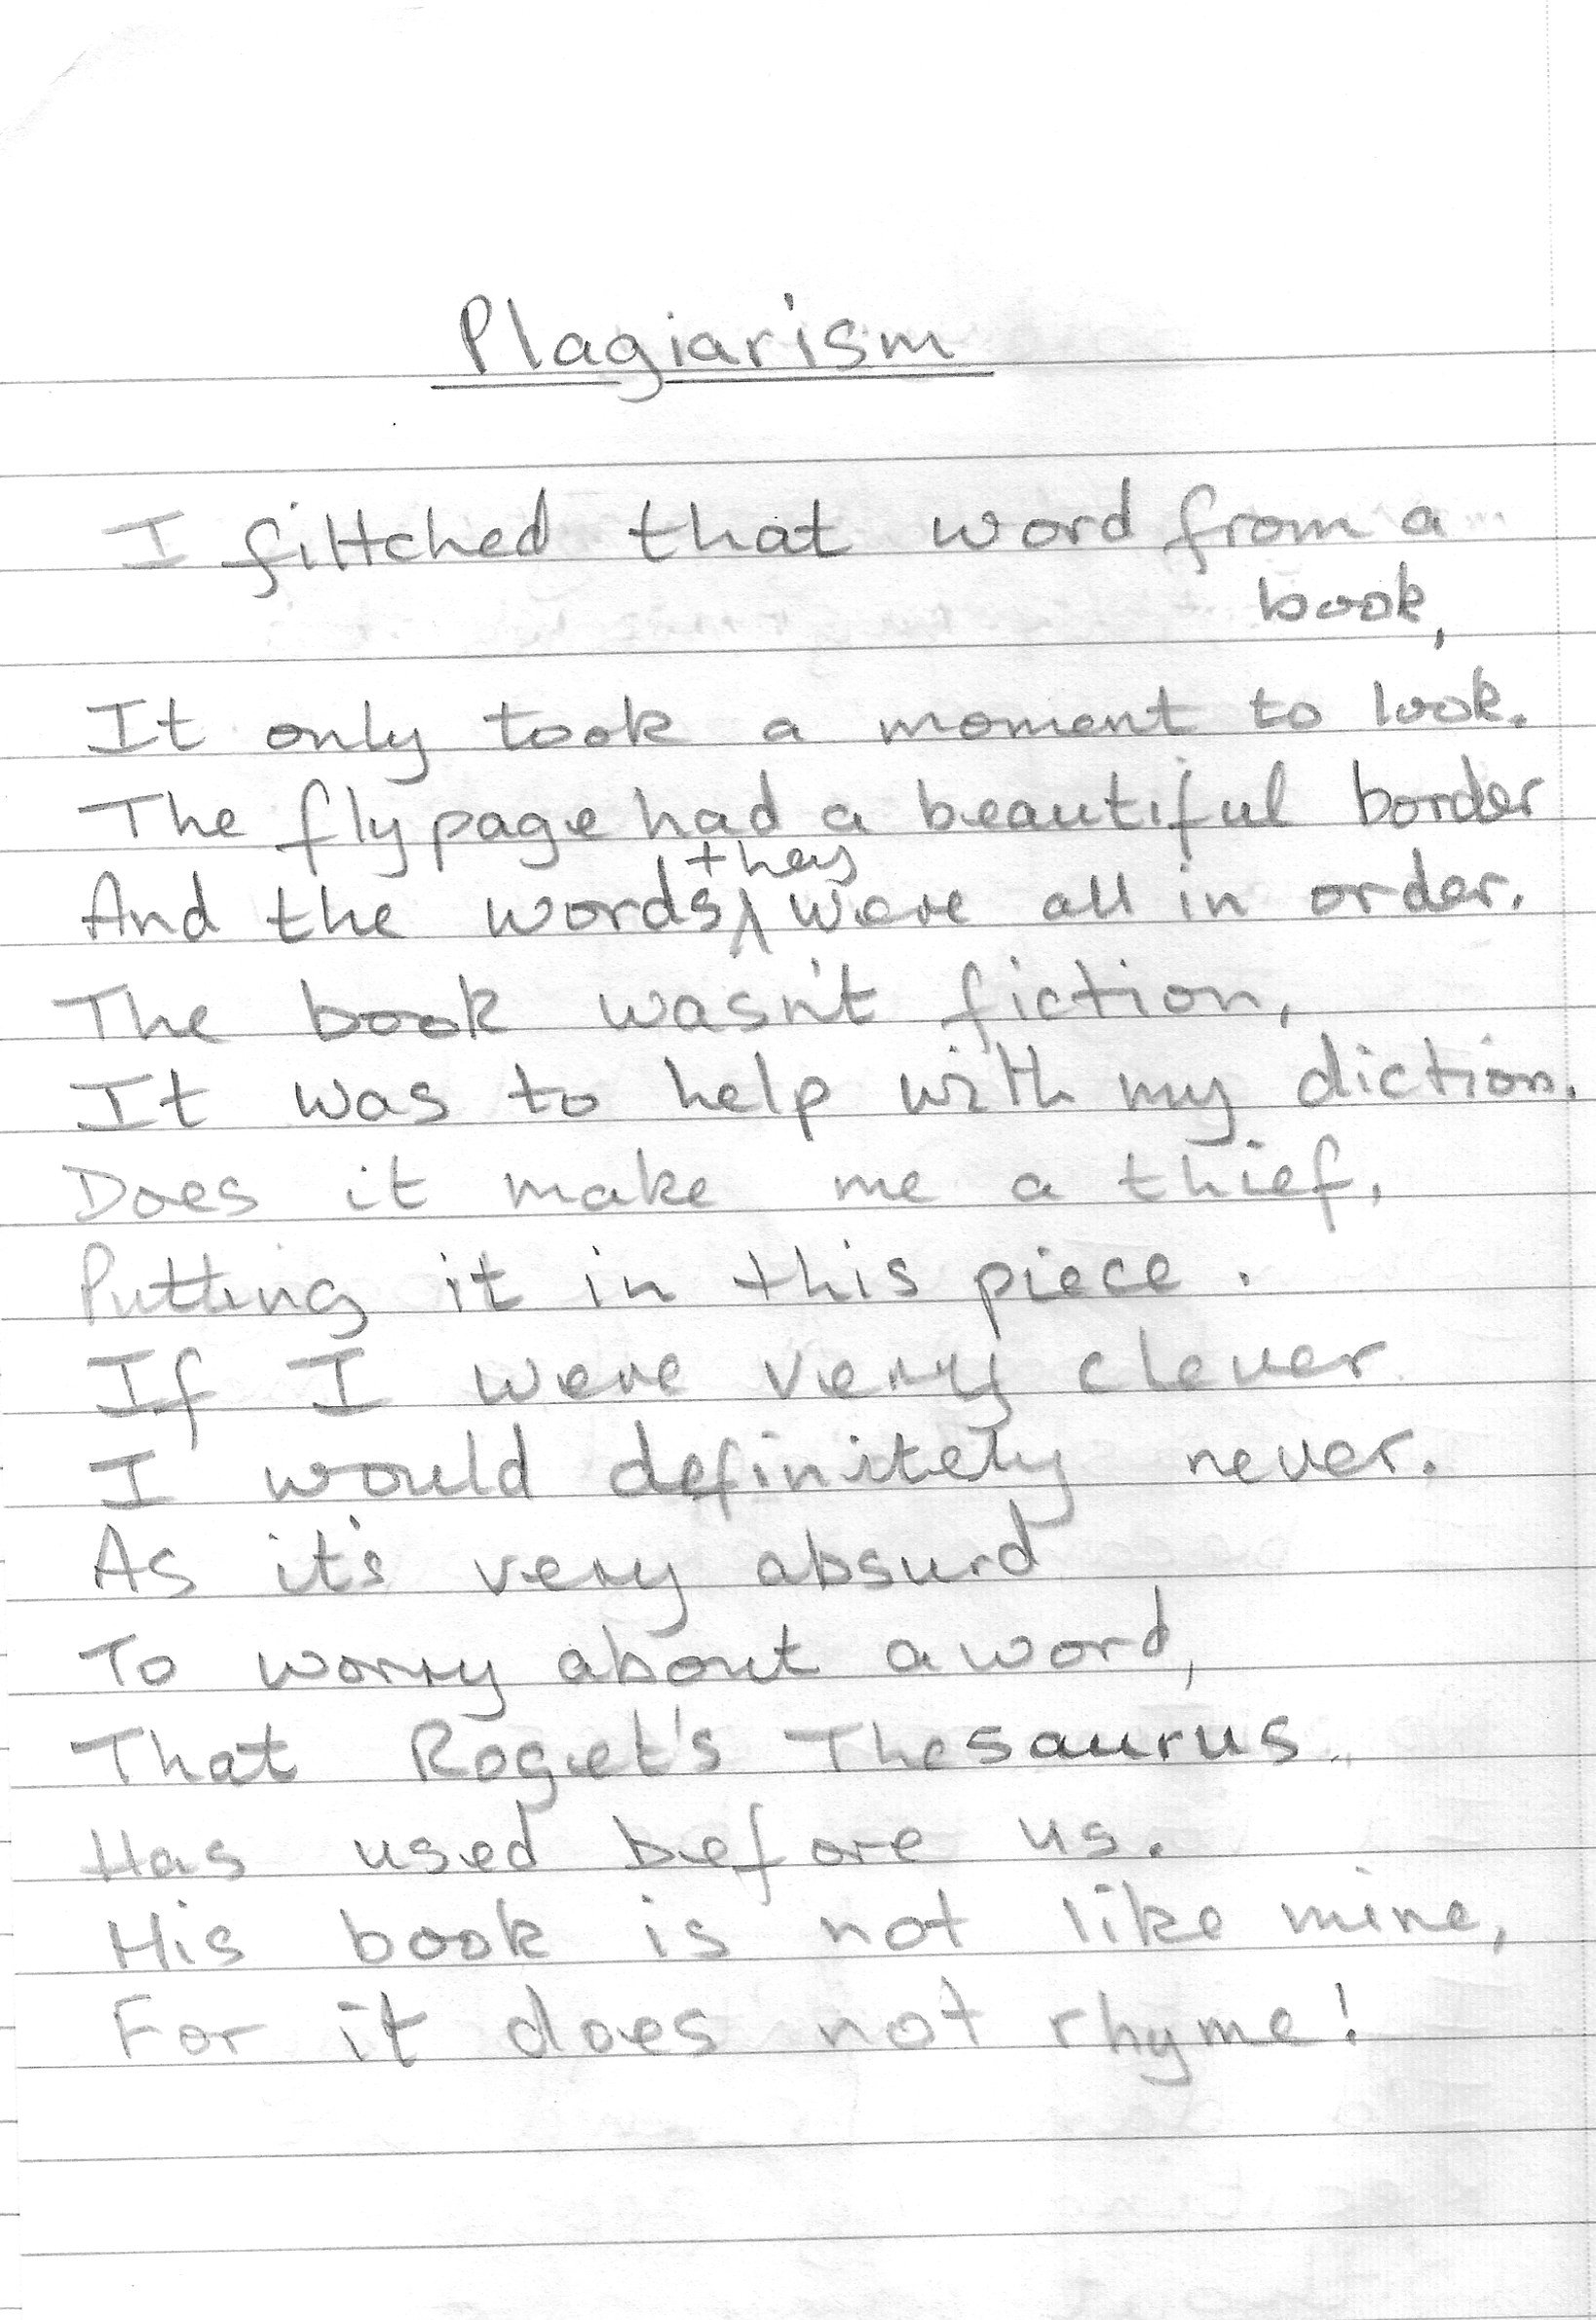 Plagiarism
I filtched that word from a
book,
It only took a moment to look.
The flypage had a beautiful border
And the words they were all in order.
The book wasn't fiction,
It was to help with my diction.
Does it make me a thief,
Putting it in this piece.
If I were very clever
I would definitely never.
As it's very absurd
To worry about a word,
That Roget's Thesaurus
Has used before us.
His book is not like mine,
For it does not rhyme!